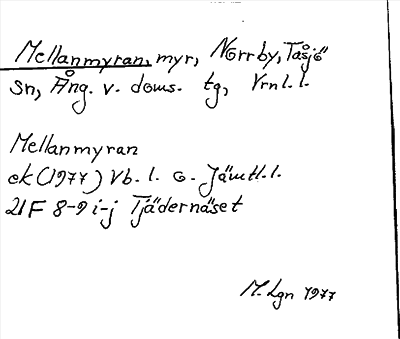 Mellanmyran, myr, Norrby, Tåsjö
sn, Ång. v. doms. tg, Vrnl. l.
Mellanmyran
ek (1977) Vb. l. o. Jämtl. l.
21F 8-9 i-j Tjädernäset
M. Lgn 1977